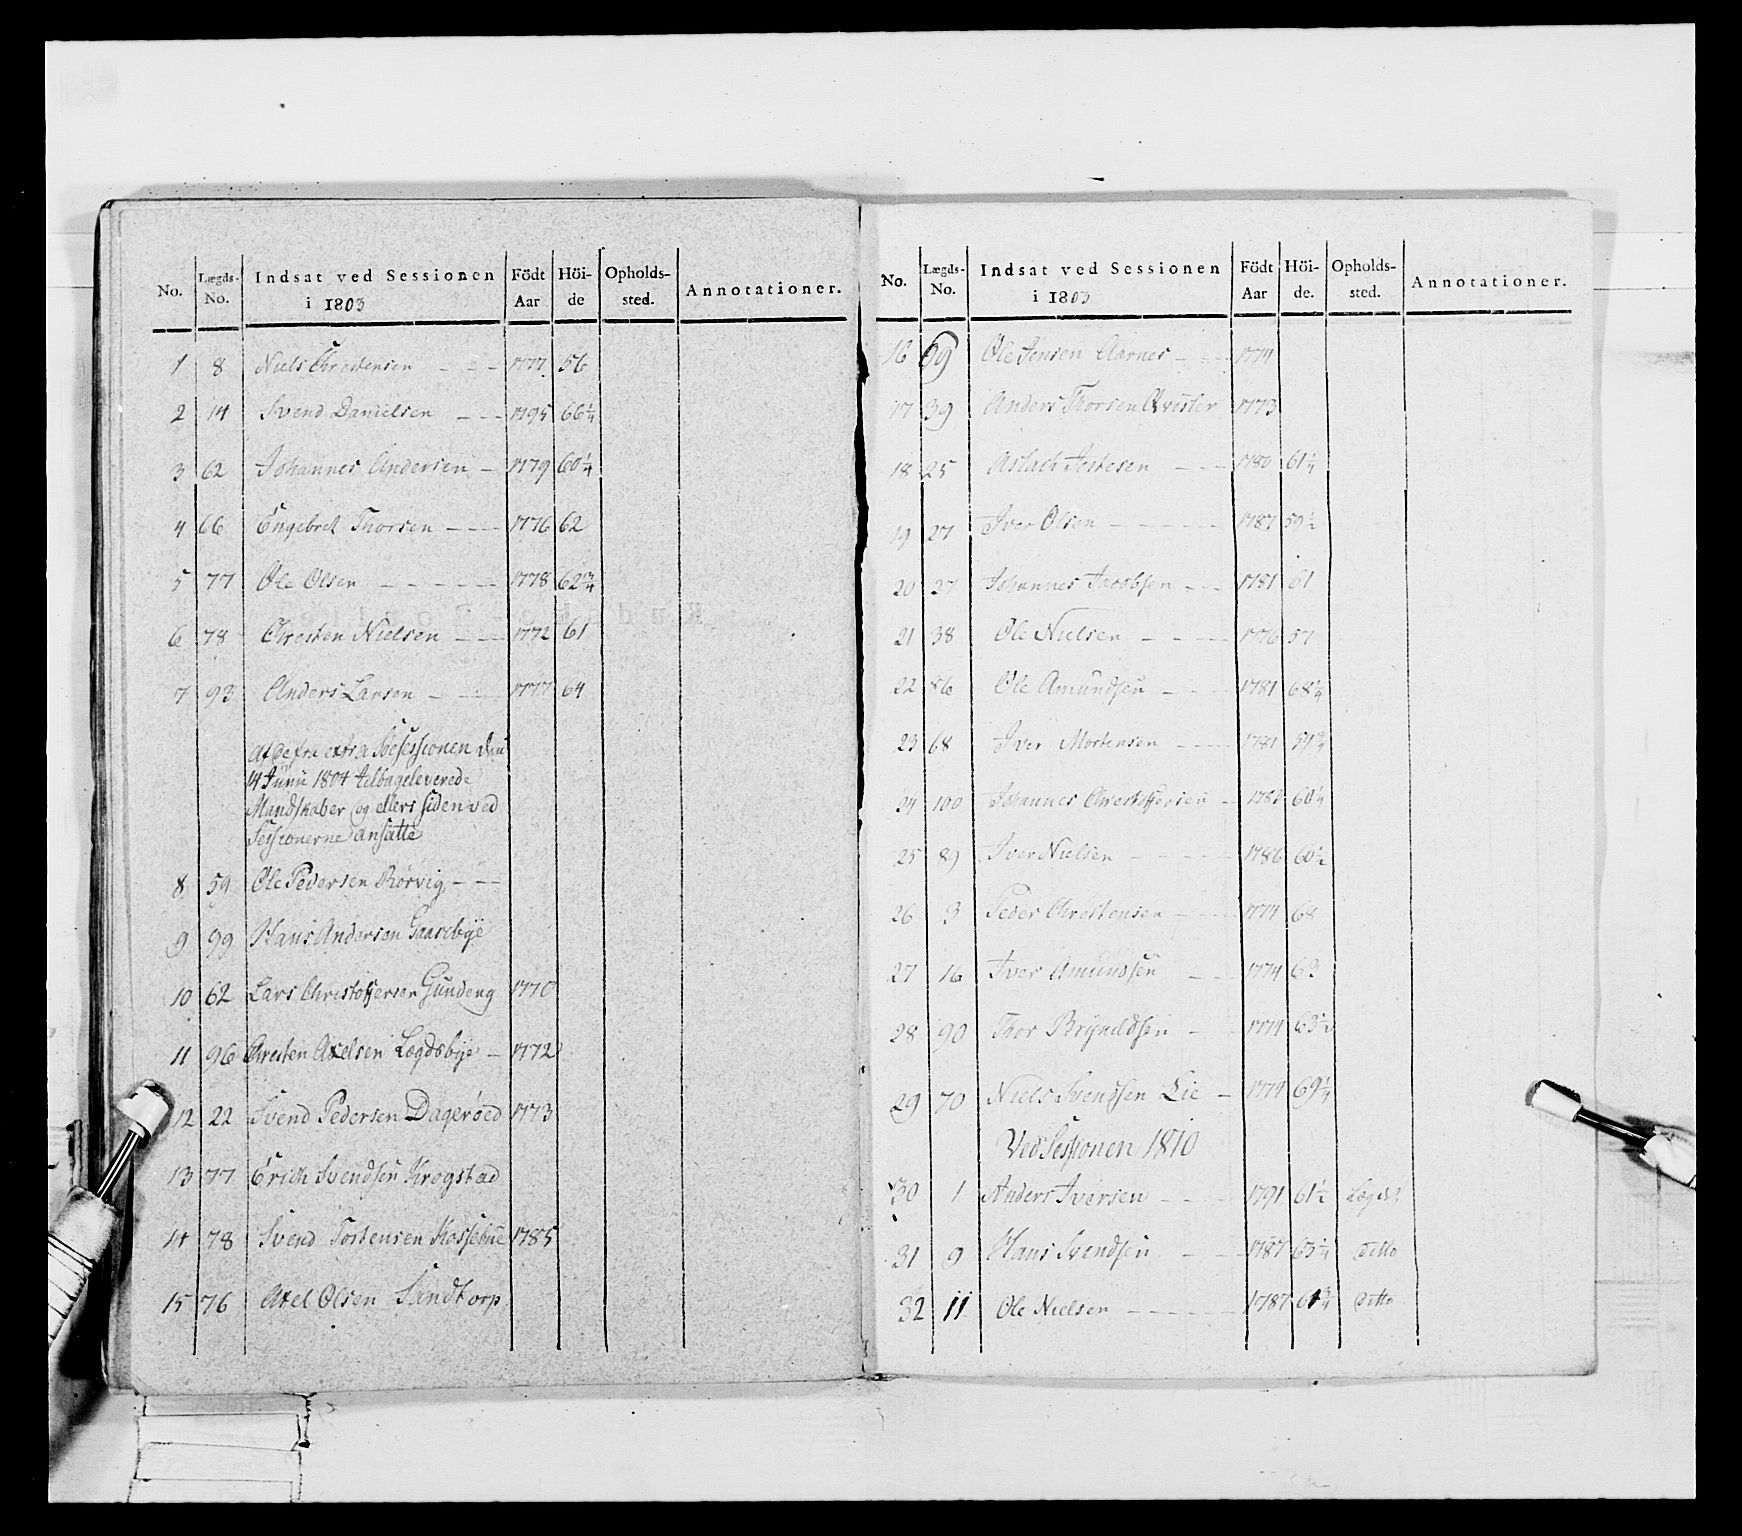 No. Lægds-No. Indsat ved Sessionen i 1803 Födt Aar Höi-de Opholds-sted. Annotationer.
1 8 Niels Chrestensen - - - 1777 56
2 14 Svend Danielsen - - - 1795 66 1/4
3 62 Johannes Andersen - 1779 60 1/4
4 66 Engebret Thorsen - - - 1776 62
5 77 Ole Olsen - - - - - 1778 62 3/4
6 78 Chresten Nielsen - - - 1772 61
7 93 Anders Larsen - - - 1777 64
Af de fra extra Söesessionen den
14 Junii 1804 tilbageleverede
Mandskaber og ellers siden ved
Sessionerne ansatte
8 59 Ole Pedersen Rörvig - - -
9 99 Hans Andersen Gaasebye
10 62 Lars Christoffersen Gundeng 1770
11 96 Chresten Axelsen Lægdsbye - 1772
12 22 Svend Pedersen Dageröed 1773
13 77 Erich Svendsen Krogstad
14 78 Svend Tostensen Kassebue 1785
15 76 Axel Olsen Sandtorp
No. Lægds-No. Indsat ved Sessionen i 1803 Födt Aar Höi-de. Opholds-sted. Annotationer.
16 Ole Jensen Aarnes - - - 1774
17 39 Anders Thorsen 1773
18 25 Aslach - - - 1780 61 1/4
19 27 Iver Olsen - - - - - 1787 59 1/2
20 27 Johannes Jacobsen - - - 1781 61
21 38 Ole Nielsen - - - - 1776 57
22 56 Ole Amundsen - - - 1781 68 1/4
23 68 Iver Mortensen - - - 1781 59 3/4
24 100 Johannes Chrestoffersen - 60 1/4
25 89 Iver Nielsen - - - - - 1786 60 1/2
26 3 Peder Chrestensen - - - 1774 68
27 16 Iver Amundsen - - 1774 63
28 90 Thor Bryneldsen - 1774 63 1/2
29 70 Niels Svendsen Lie - 1774 69 1/4
Ved Sessionen 1810
30 1 Anders Iversen - - - 1791 61 1/2 Lægdet
31 9 Hans Svendsen - - - 1787 63 1/4 ditto
32 11 Ole Nielsen - - - - - 1787 61 3/4 ditto